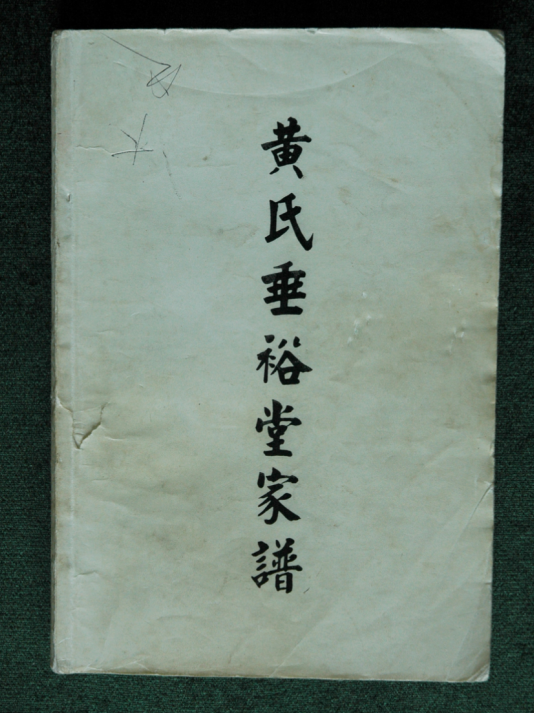 黄氏垂裕堂家譜